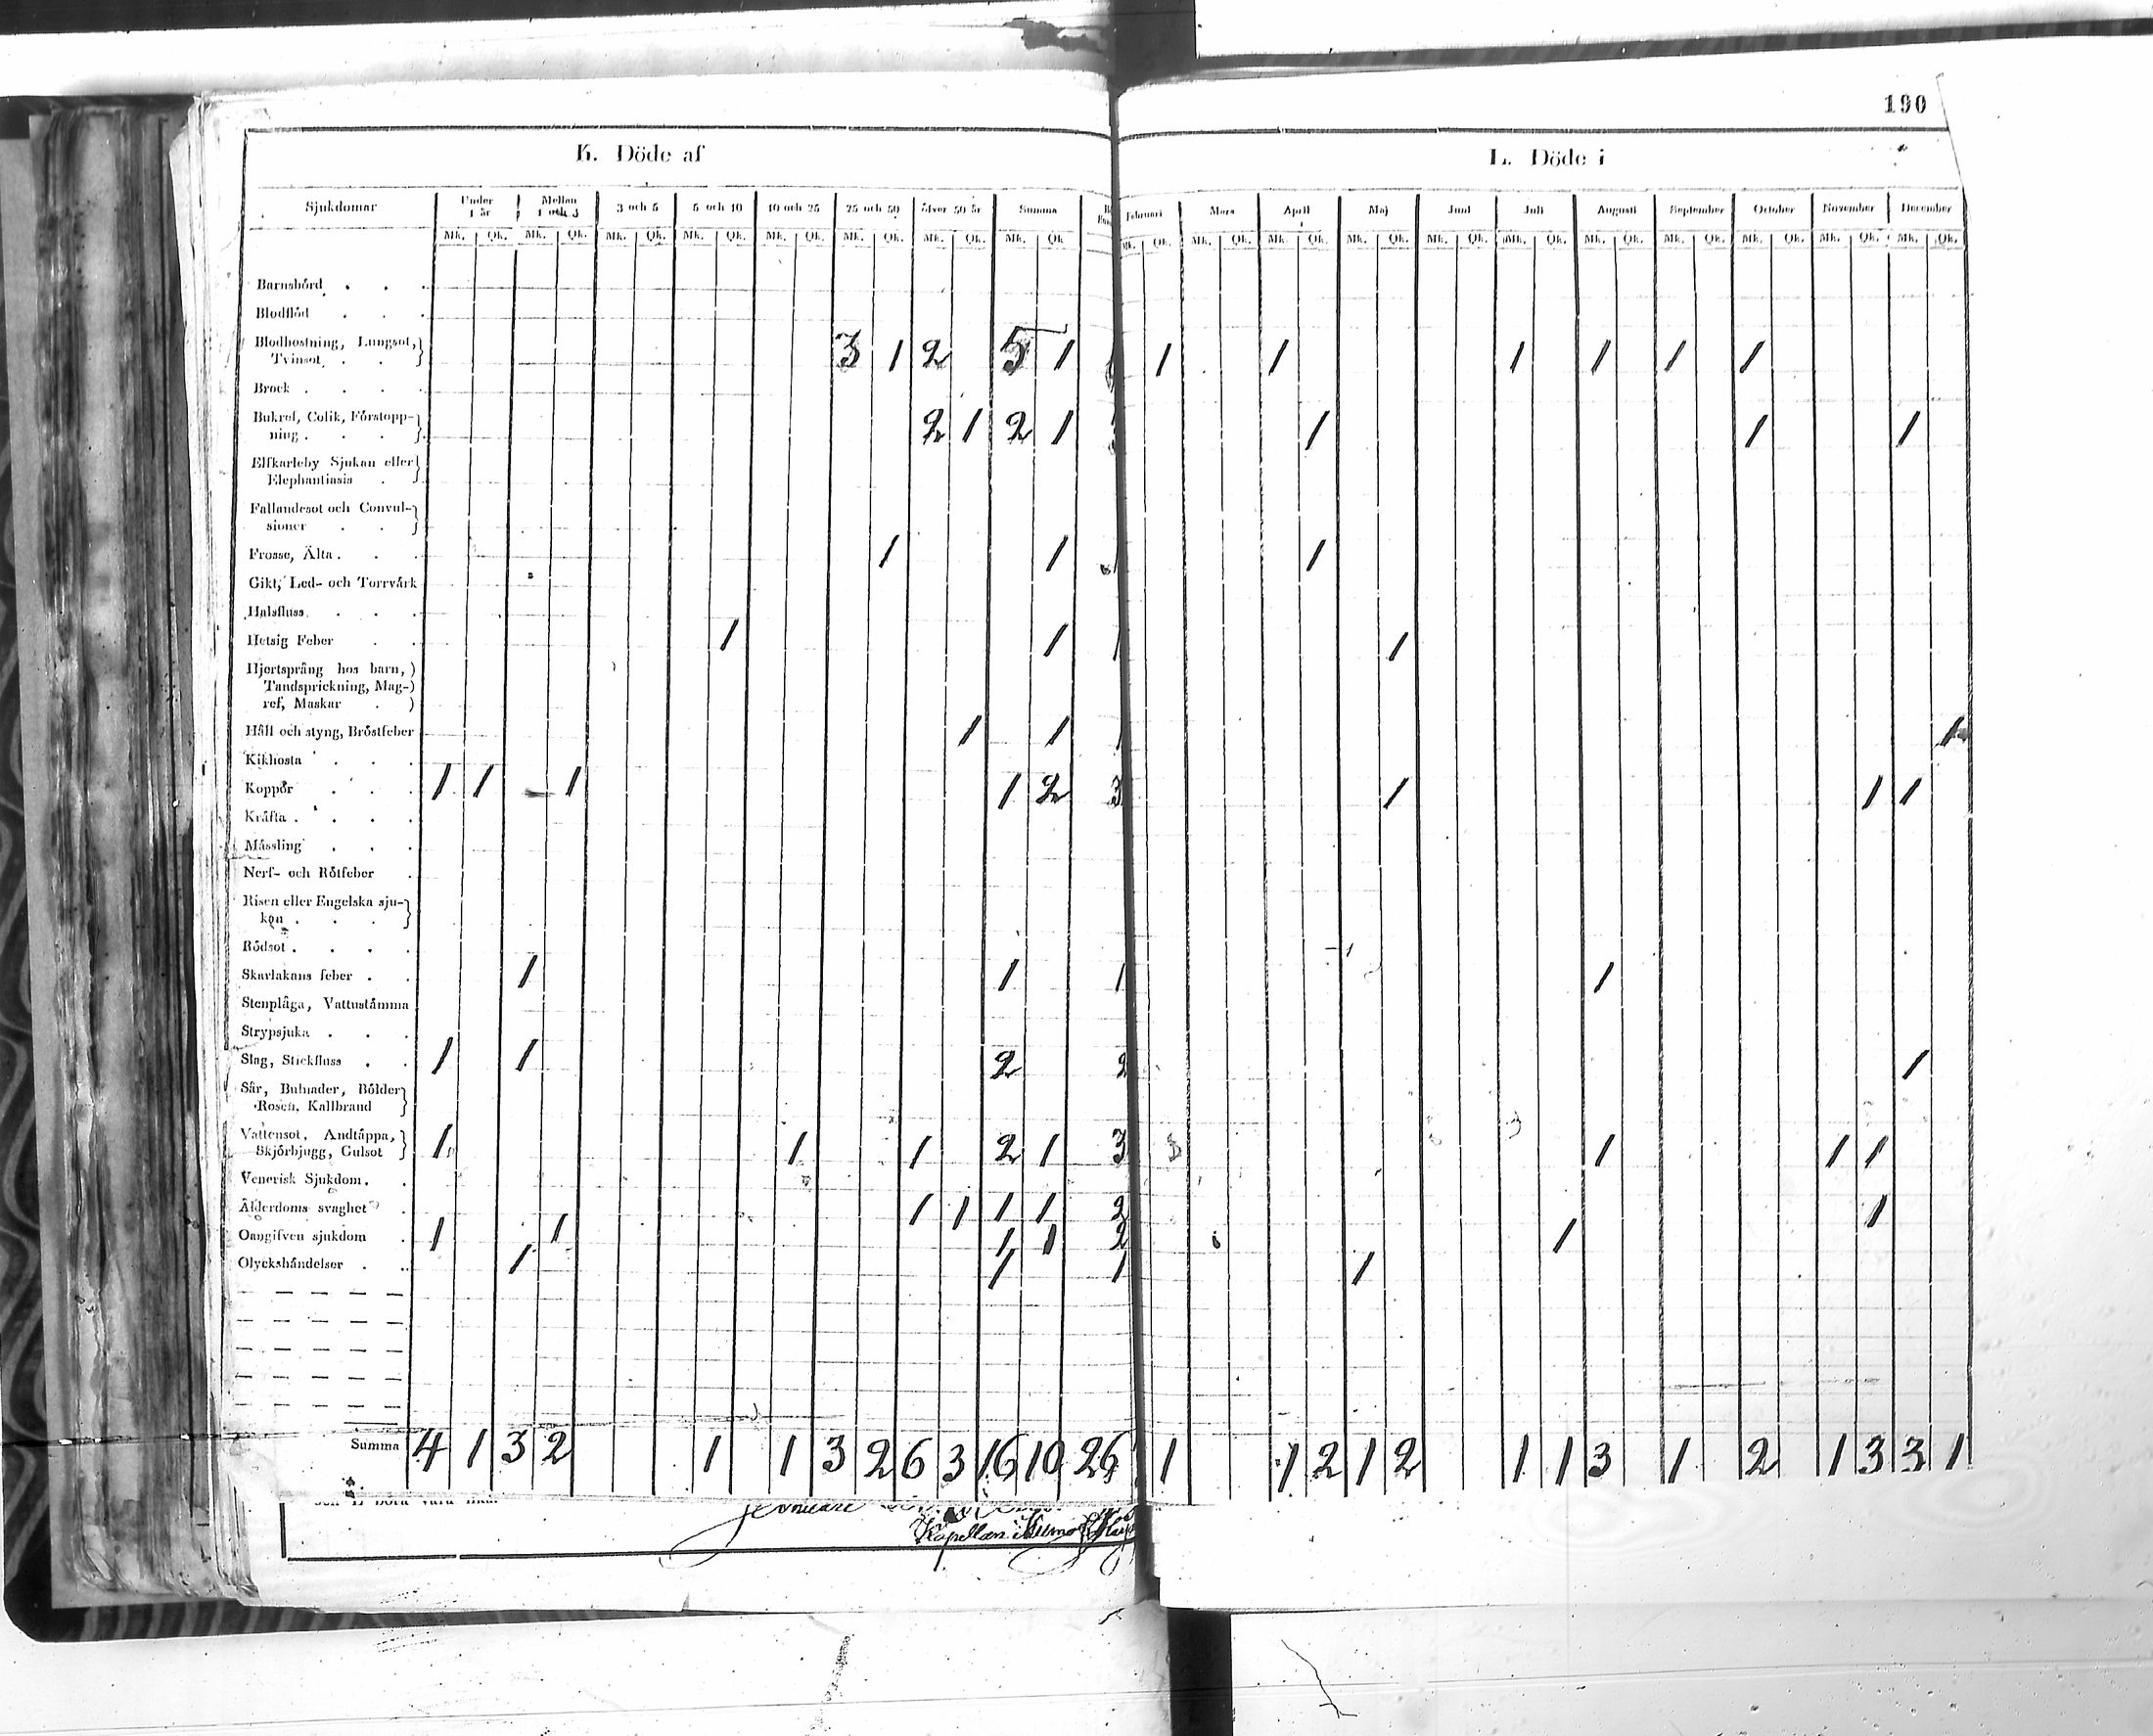 190
K. Döde af
L. Döde i
Sjukdomar Under 1 år Mellan 1 och 3 3 och 5 5 och 10 10 och 25 25 och 50 öfver 50 år Summa
Februari Mars April Maj Juni Juli Augusti September October November December
Mk. Qk. Mk. Qk. Mk. Qk. Mk. Qk. Mk. Qk. Mk. Qk. Mk. Qk. Mk. Qk.
Mk. Qk. Mk. Qk. Mk. Qk. Mk. Qk. Mk. Qk. Mk. Qk. Mk. Qk. Mk. Qk. Mk. Qk. Mk. Qk. Mk. Qk.
Barnsbörd . . .
Blodflöd . . .
Blodhostning, Lungsot,
Tvinsot . . 3 1 2 5 1 1 1 1 1 1 1
Brock . . . .
Bukref, Colik, Förstopp-
ning . . . . 2 1 2 1 1 1 1
Elfkarleby Sjukan eller
Elephantiasis .
Fallandesot och Convul-
sioner . .
Frosse, Älta . . . 1 1 1 1
Gikt, Led- och Torrvärk
Halsfluss . . . .
Hetsig Feber . . 1 1 1 1
Hjertsprång hos barn,
Tandsprickning, Mag-
ref, Maskar .
Håll och styng, Bröstfeber 1 1 1 1
Kikhosta . . .
Koppor . . . 1 1 1 1 2 3 1 1 1
Kräfta . . . .
Mässling . . .
Nerf- och Rötfeber .
Risen eller Engelska sju-
kan . . .
Rödsot . . . .
Skarlakans feber . . 1 1 1 1
Stenplåga, Vattustämma
Strypsjuka . . .
Slag, Stickfluss . . 1 1 2 2 1
Sår, Bulnader, Bölder
Rosen, Kallbrand
Vattensot, Andtäppa,
Skjörbjugg, Gulsot 1 1 1 2 1 3 1 1 1
Venerisk Sjukdom . .
Ålderdoms svaghet . 1 1 1 1 2 1
Oangifven sjukdom . 1 1 1 1 2 1
Olyckshändelser . . 1 1 1 1
Summa 4 1 3 2 1 1 3 2 6 3 16 10 26 1 1 2 1 2 1 1 3 1 2 1 3 3 1
Kapellan i